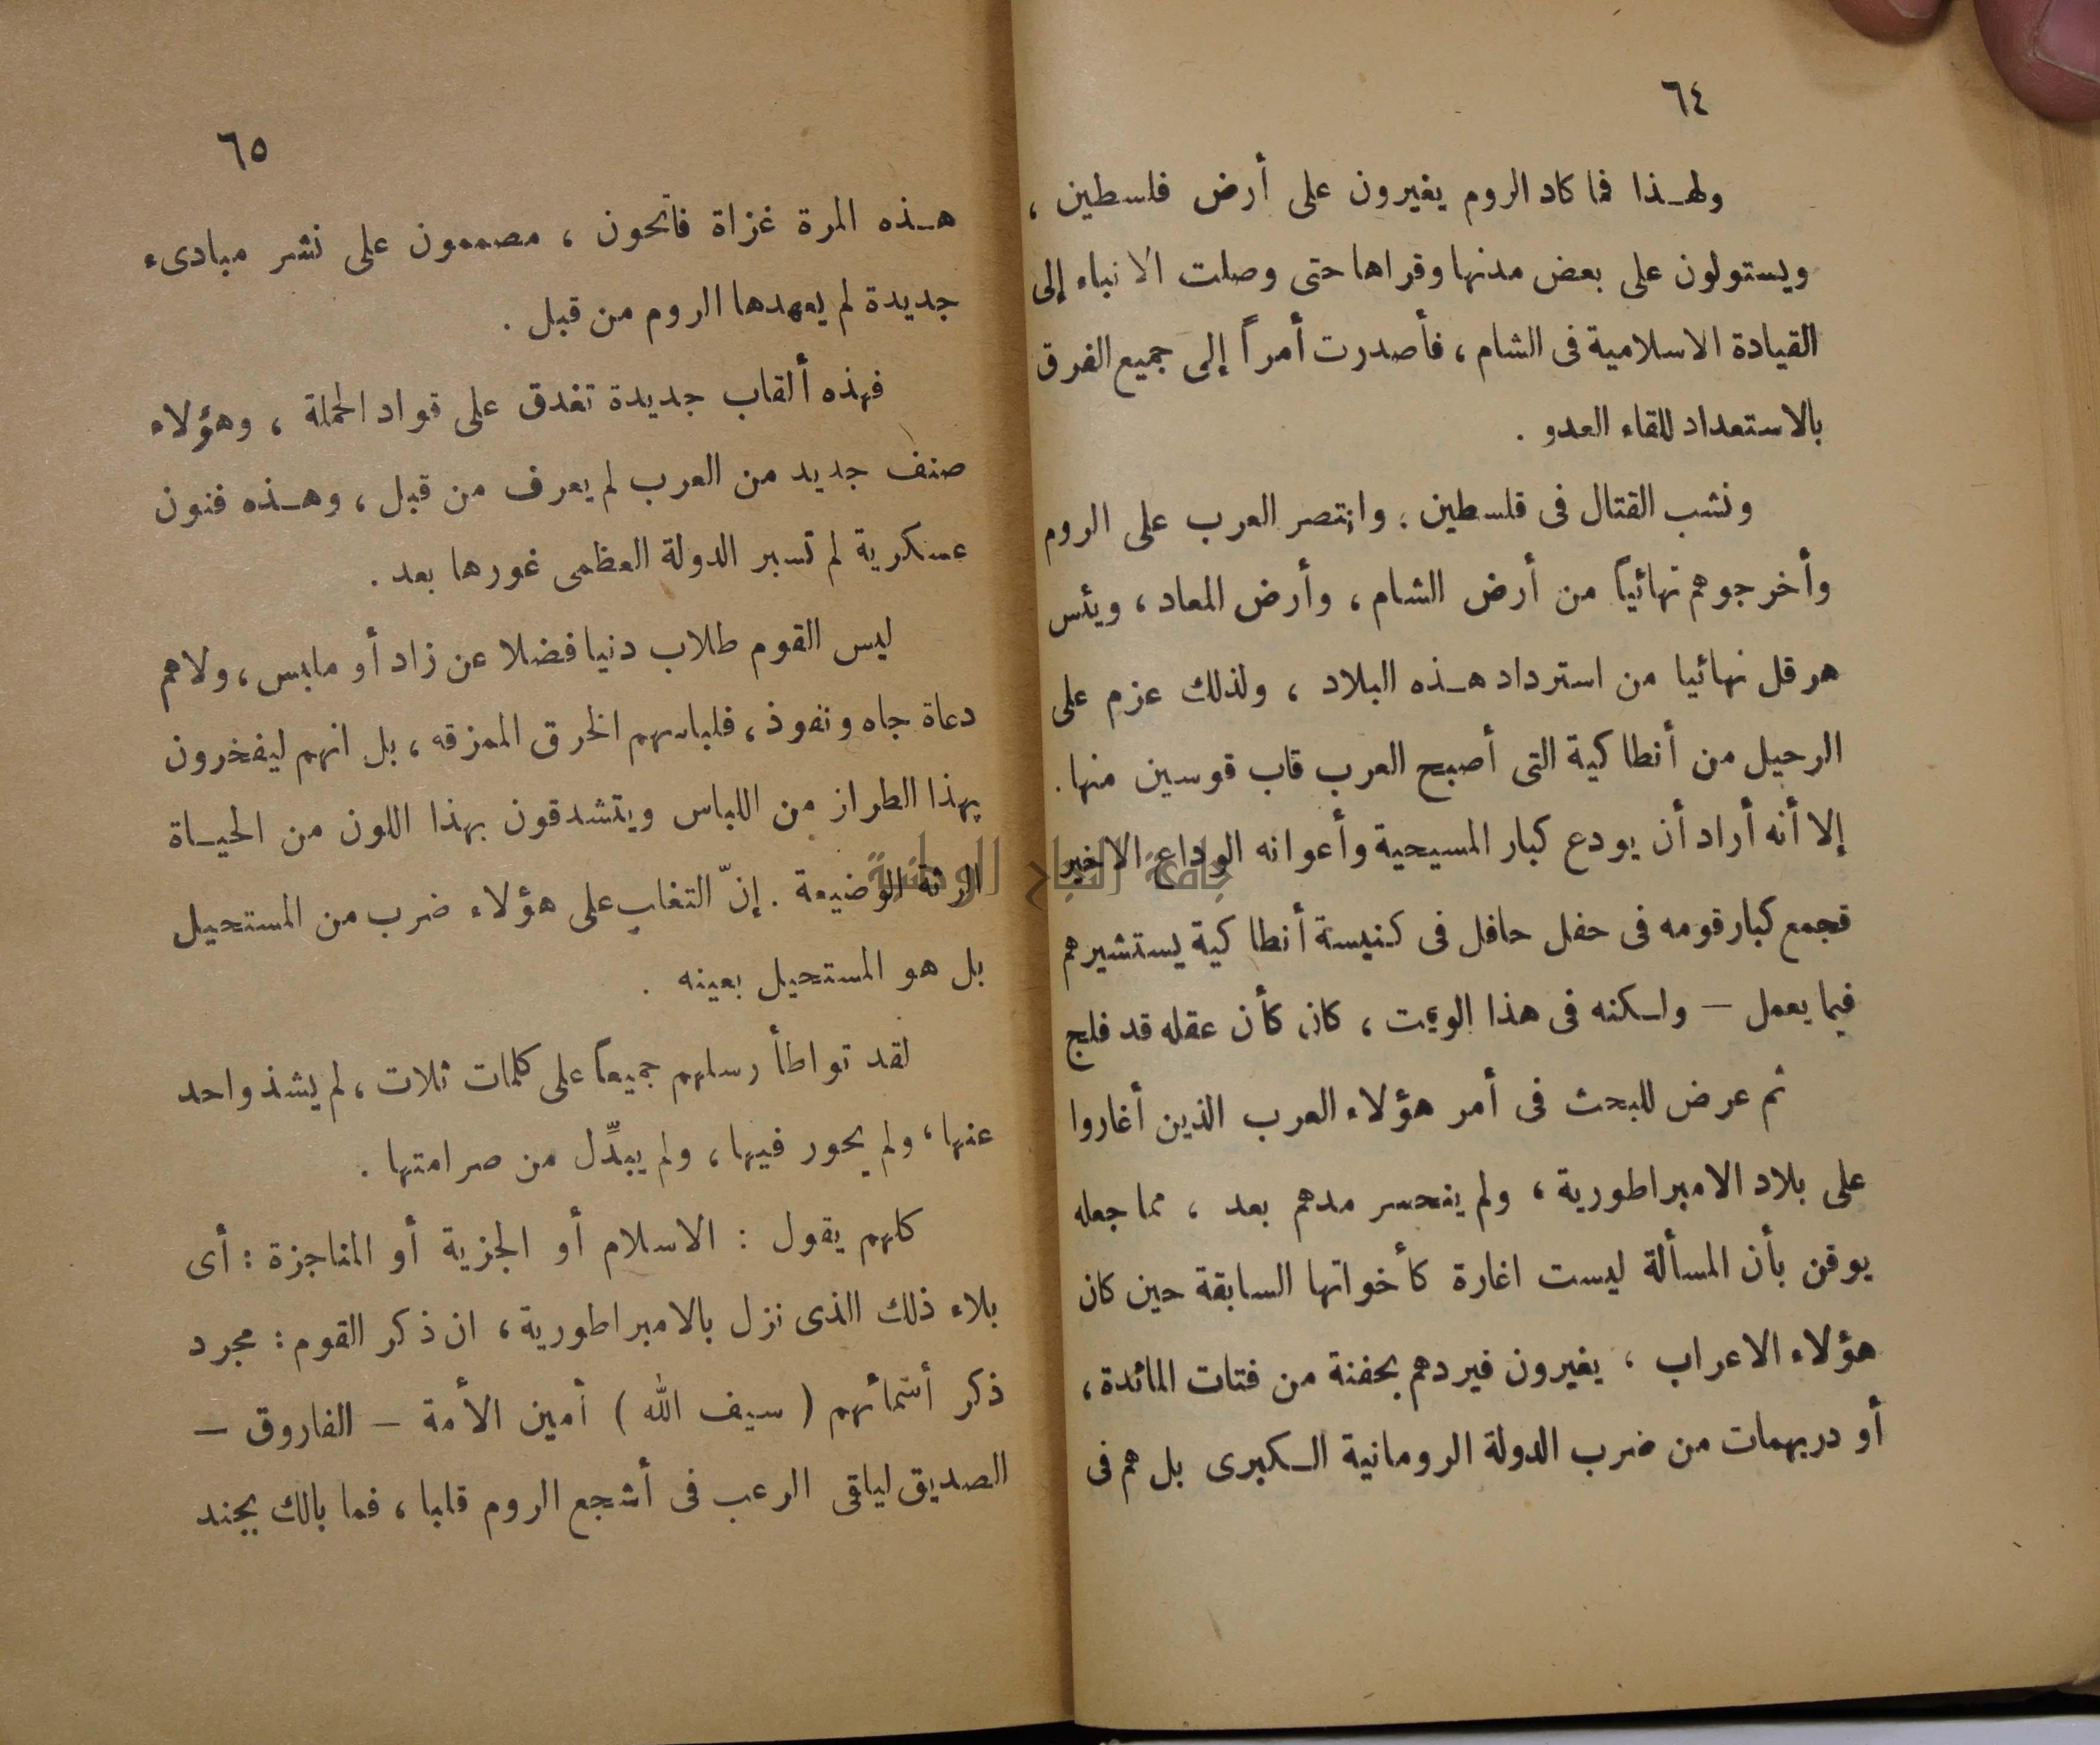 ٦٤
ولهذا فما كاد الروم يغيرون على أرض فلسطين ،
ويستولون على بعض مدنها وقراها حتى وصلت الانباء إلى
القيادة الاسلامية فى الشام ، فأصدرت أمراً إلى جميع الفرق
بالاستعداد للقاء العدو .
ونشب القتال فى فلسطين . وانتصر العرب على الروم
وأخرجوهم نهائياً من أرض الشام ، وأرض المعاد ، ويئس
هرقل نهائيا من استرداد هذه البلاد ، ولذلك عزم على
الرحيل من أنطاكية التى أصبح العرب قاب قوسين منها .
إلا أنه أراد أن يودع كبار المسيحية وأعوانه الوداع الاخير
فجمع كبار قومه فى حفل حافل فى كنيسة أنطاكية يستشيرهم
فيما يعمل — ولكنه فى هذا الوقت ، كان كأن عقله قد فلج
ثم عرض للبحث فى أمر هؤلاء العرب الذين أغاروا
على بلاد الامبراطورية ، ولم ينحسر مدهم بعد ، مما جعله
يوقن بأن المسألة ليست اغارة كأخواتها السابقة حين كان
هؤلاء الاعراب ، يغيرون فيردهم بحفنة من فتات المائدة ،
أو دريهمات من ضرب الدولة الرومانية الكبرى بل هم فى
٦٥
هذه المرة غزاة فاتحون ، مصممون على نشر مبادىء
جديدة لم يعهدها الروم من قبل .
فهذه ألقاب جديدة تغدق على قواد الحملة ، وهؤلاء
صنف جديد من العرب لم يعرف من قبل ، وهذه فنون
عسكرية لم تسبر الدولة العظمى غورها بعد .
ليس القوم طلاب دنيا فضلا عن زاد أو ملبس ، ولا هم
دعاة جاه ونفوذ ، فلباسهم الخرق الممزقه ، بل انهم ليفخرون
بهذا الطراز من اللباس ويتشدقون بهذا اللون من الحياة
الرثة الوضيعة . إنّ التغلب على هؤلاء ضرب من المستحيل
بل هو المستحيل بعينه .
لقد تواطأ رسلهم جميعاً على كلمات ثلاث ، لم يشذ واحد
عنها ، ولم يحور فيها ، ولم يبدِّل من صرامتها .
كلهم يقول : الاسلام أو الجزية أو المناجزة : أى
بلاء ذلك الذى نزل بالامبراطورية ، ان ذكر القوم : مجرد
ذكر أسمائهم ( سيف الله ) أمين الأمة — الفاروق —
الصديق لياقى الرعب فى أشجع الروم قلبا ، فما بالك بجند
جامعة النجاح الوطنية